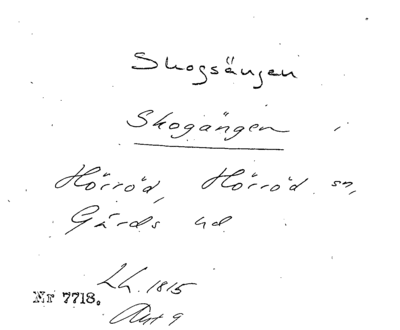 Skogsängen
Skogängen
Hörröd, Hörröd sn,
Gärds hd
Lh. 1815
Akt 9
Nr 7718.